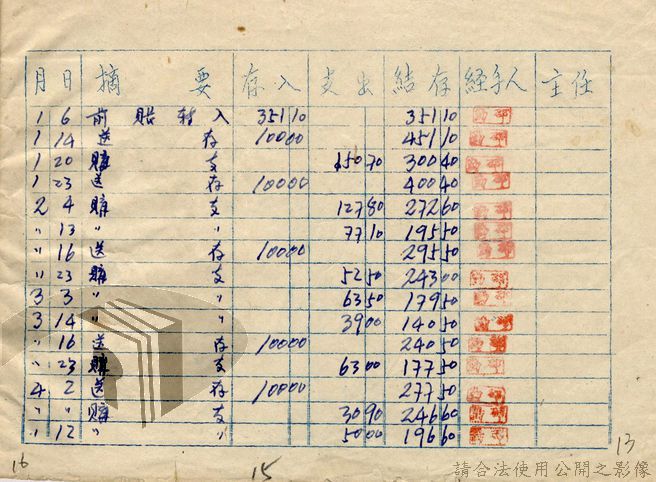 月 日 摘 要 存入 支出 結存 経手人 主任
1 6 前 賬 轉 入 351 10 351 10
1 14 送 存 100 00 451 10
1 20 購 支 150 70 300 40
1 23 送 存 100 00 400 40
2 4 購 支 127 80 272 60
" 13 " " 77 10 195 50
" 16 送 存 100 00 295 50
" 23 購 支 52 50 243 00
3 3 " " 63 50 179 50
3 14 " " 39 00 140 50
" 16 送 存 100 00 240 50
" 23 購 支 63 00 177 50
4 2 送 存 100 00 277 50
" " 購 支 30 90 246 60
" 12 " " 50 00 196 60
16 15 13
請合法使用公開之影像